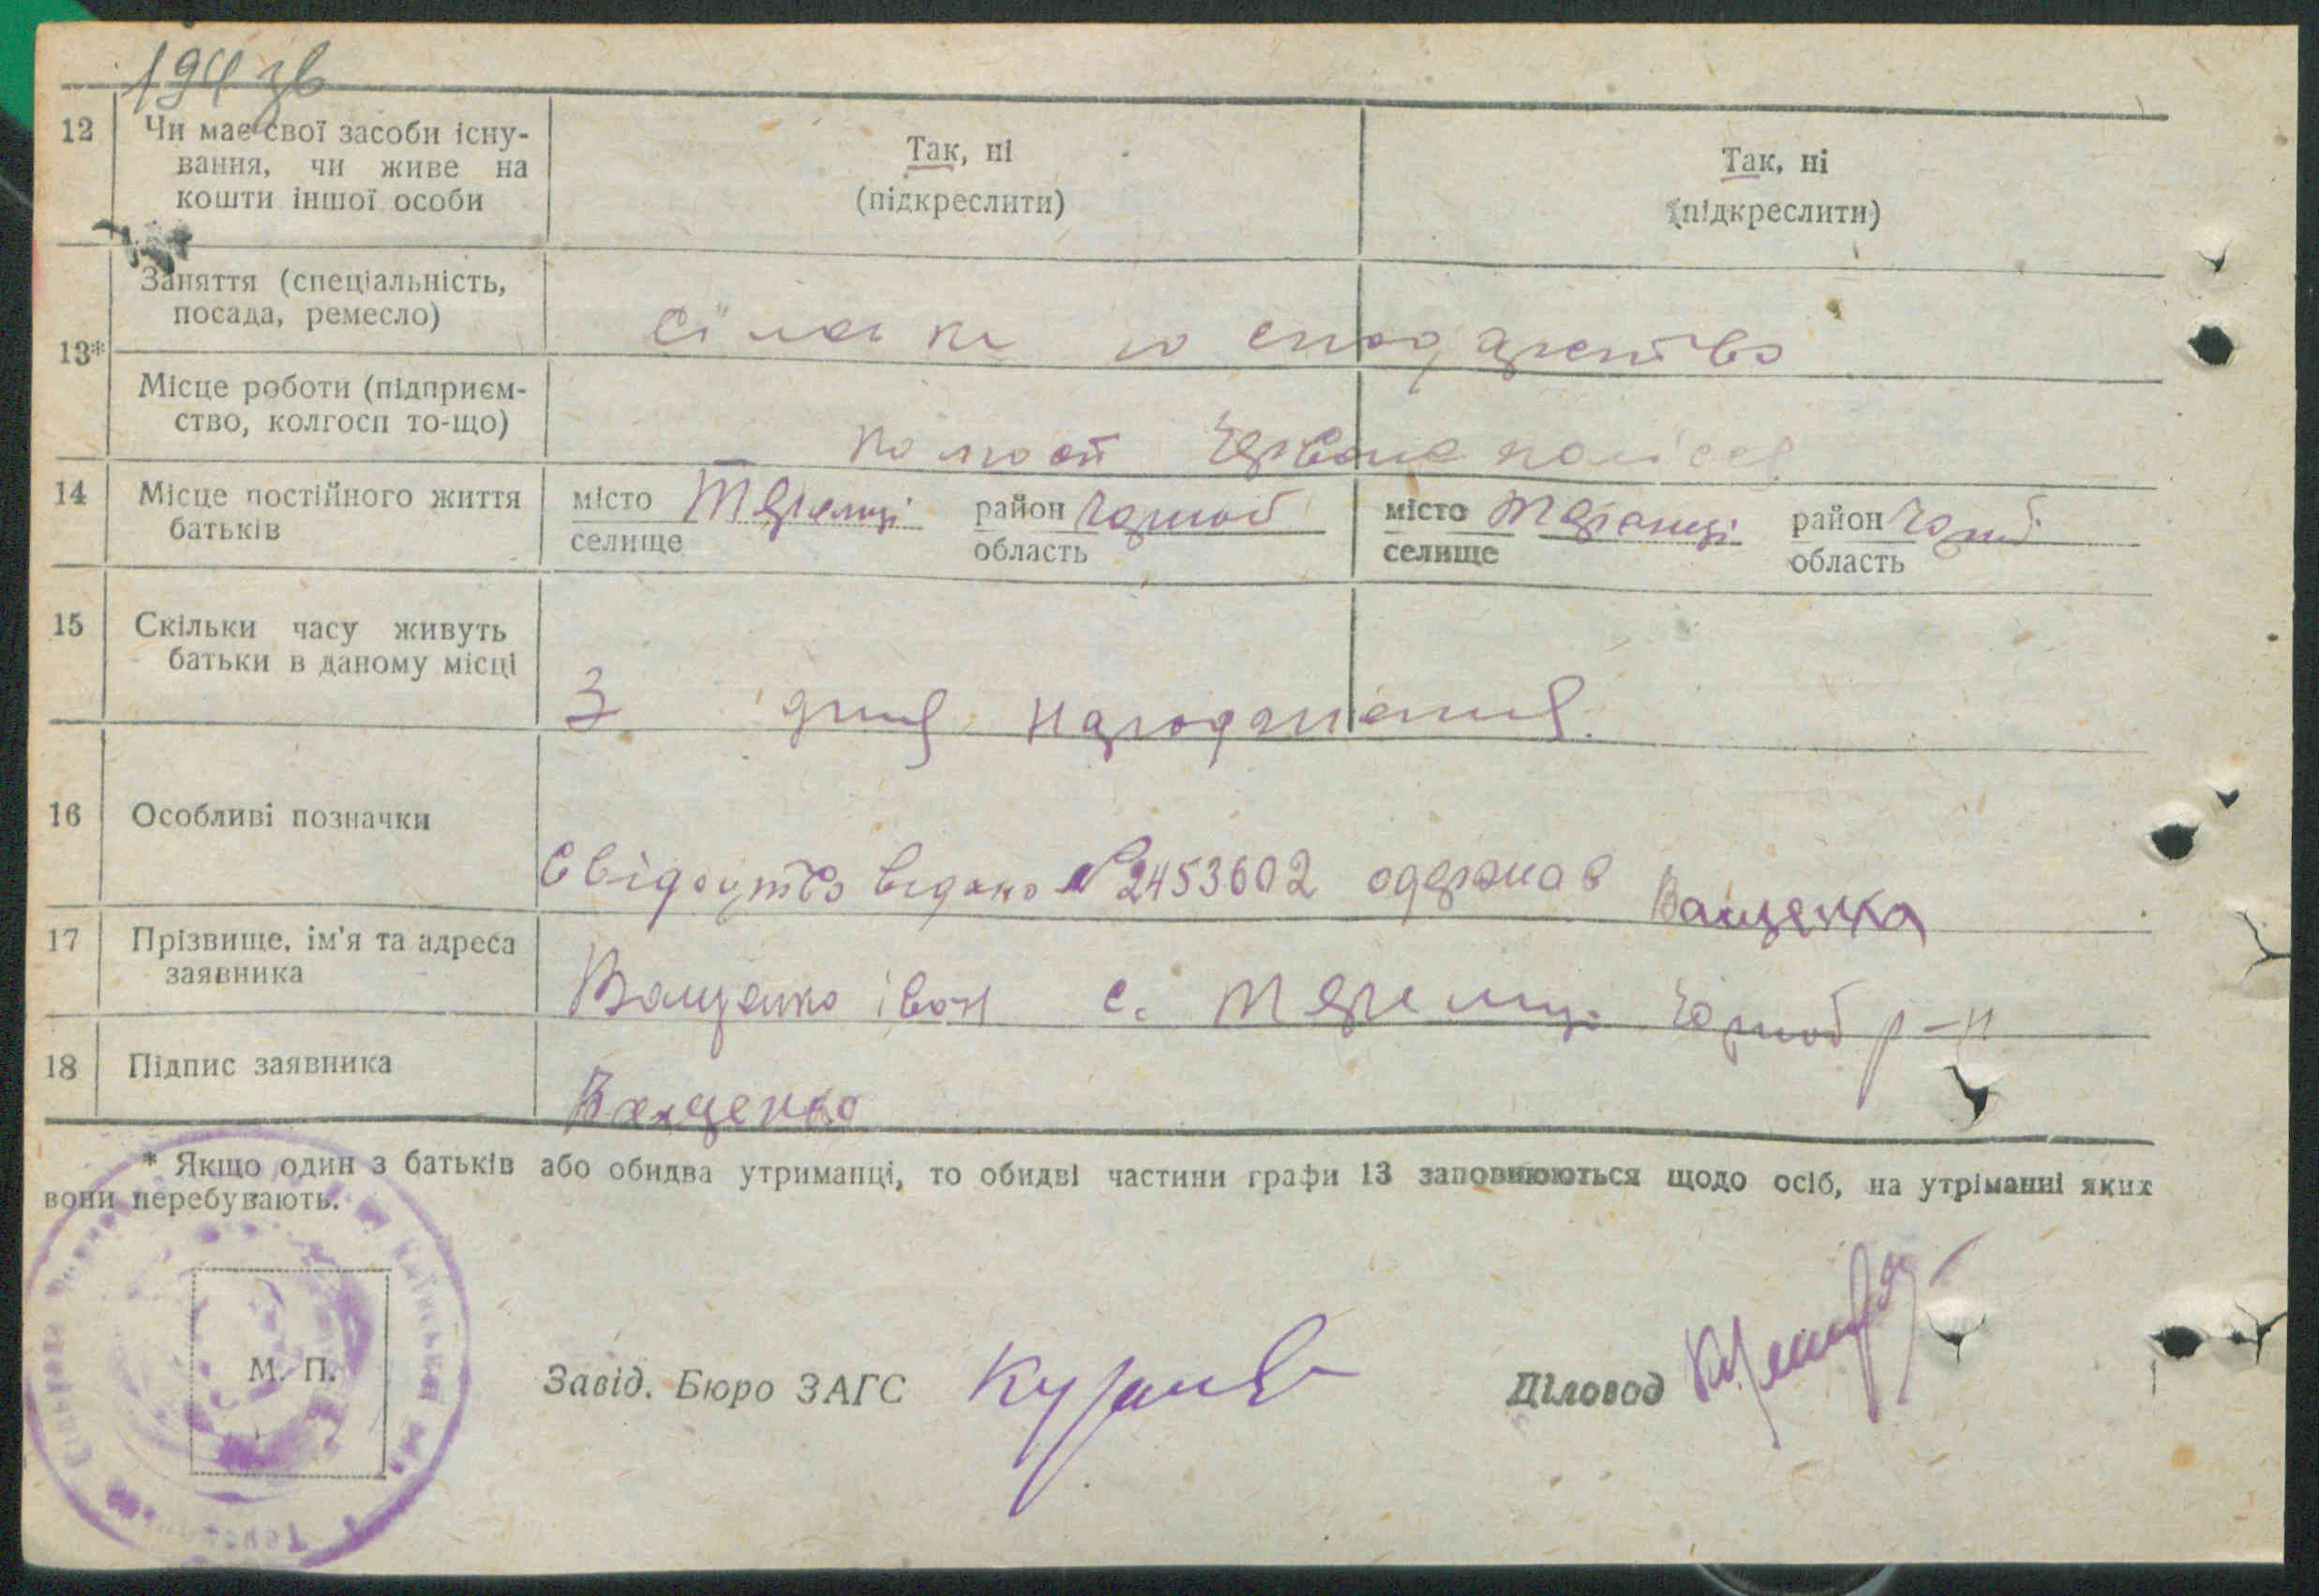 194 зв
12 Чи має свої засоби існу-
вання, чи живе на
кошти іншої особи
Так, ні
(підкреслити)
Так, ні
(підкреслити)
13*
Заняття (спеціальність,
посада, ремесло)
сільське господарство
Місце роботи (підприєм-
ство, колгосп то-що)
колгосп Червоне полісся
14 Місце постійного життя
батьків
місто Теремці район Чорноб
селище область
місто Теремці район Чорноб
селище область
15 Скільки часу живуть
батьки в даному місці
З дня народження.
16 Особливі позначки
Свідоцтво видано № 2453602 одержав Ващенка
17 Прізвище, ім'я та адреса
заявника
Ващенко Іван с. Теремці Чорноб р-н
18 Підпис заявника
Ващенко
* Якщо один з батьків або обидва утриманці, то обидві частини графи 13 заповнюються щодо осіб, на утріманні яких
вони перебувають.
М. П.
Завід. Бюро ЗАГС
Діловод